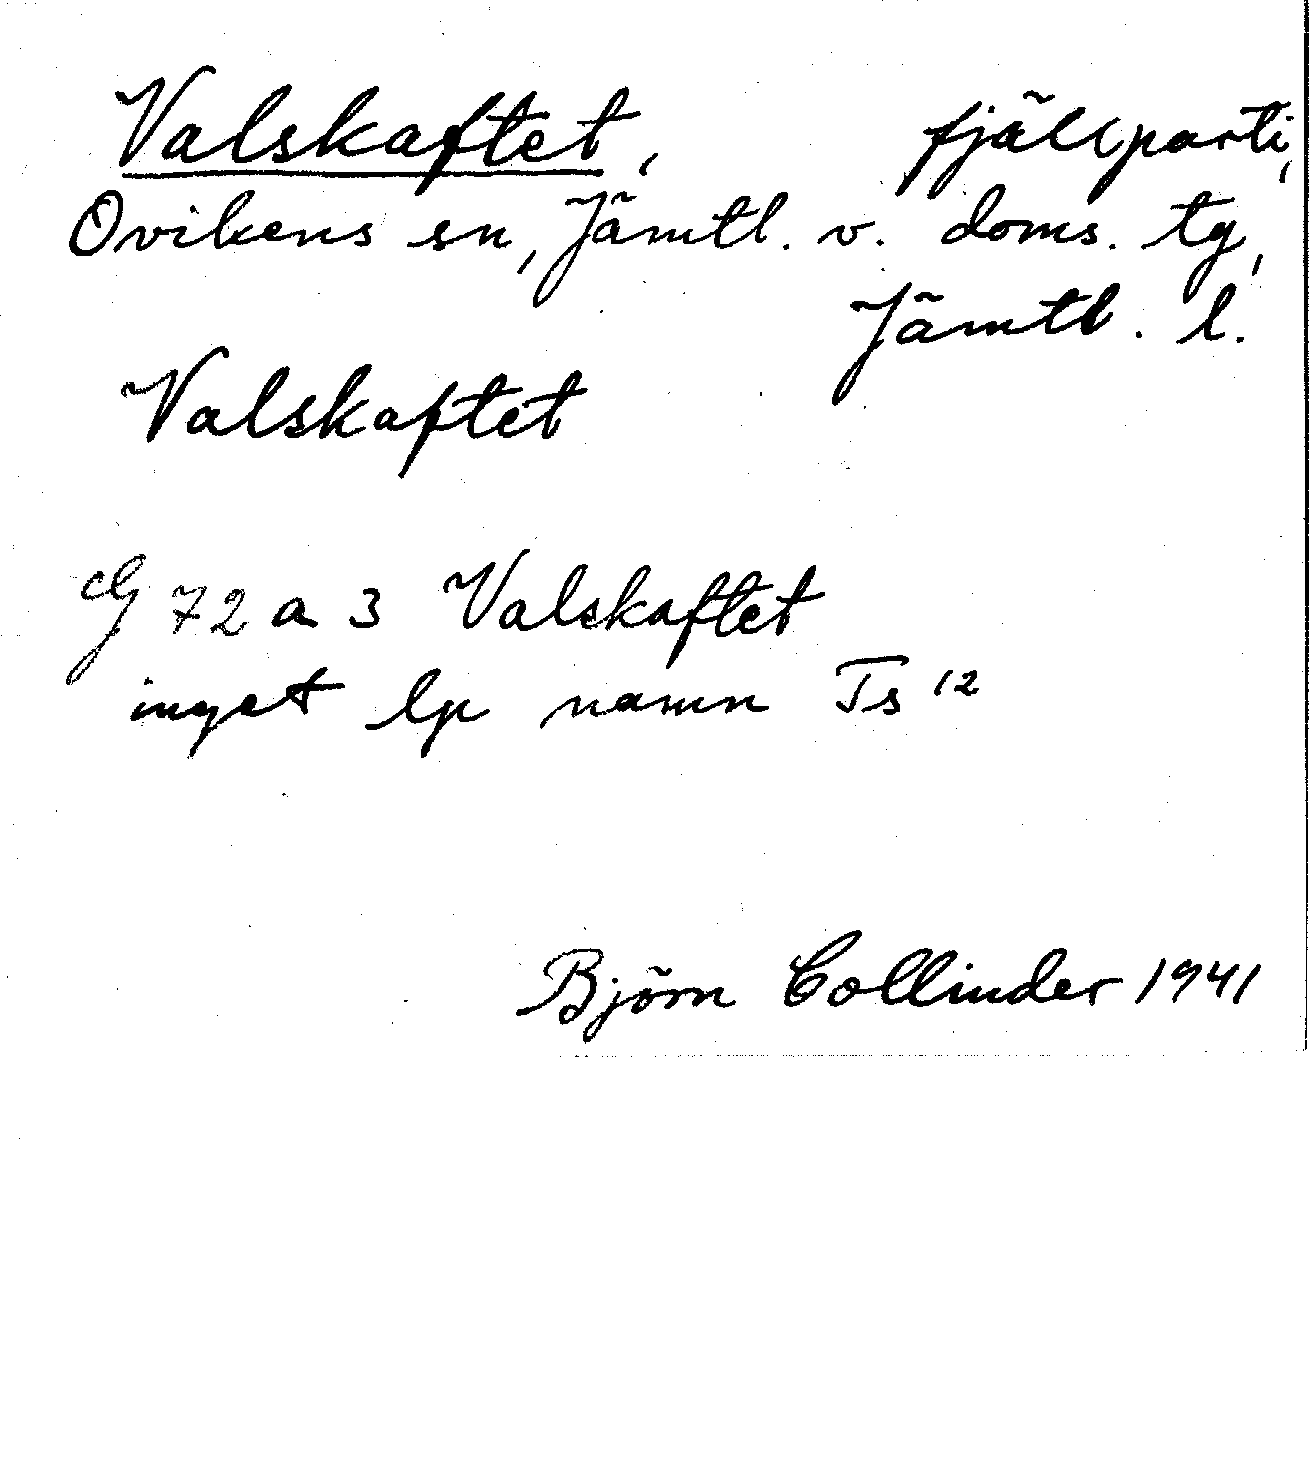 Valskaftet, fjällparti,
Ovikens sn, Jämtl. v. doms. tg,
Jämtl. l.
Valskaftet
G 72 a 3 Valskaftet
inget lp namn Ts 12
Björn Collinder 1941